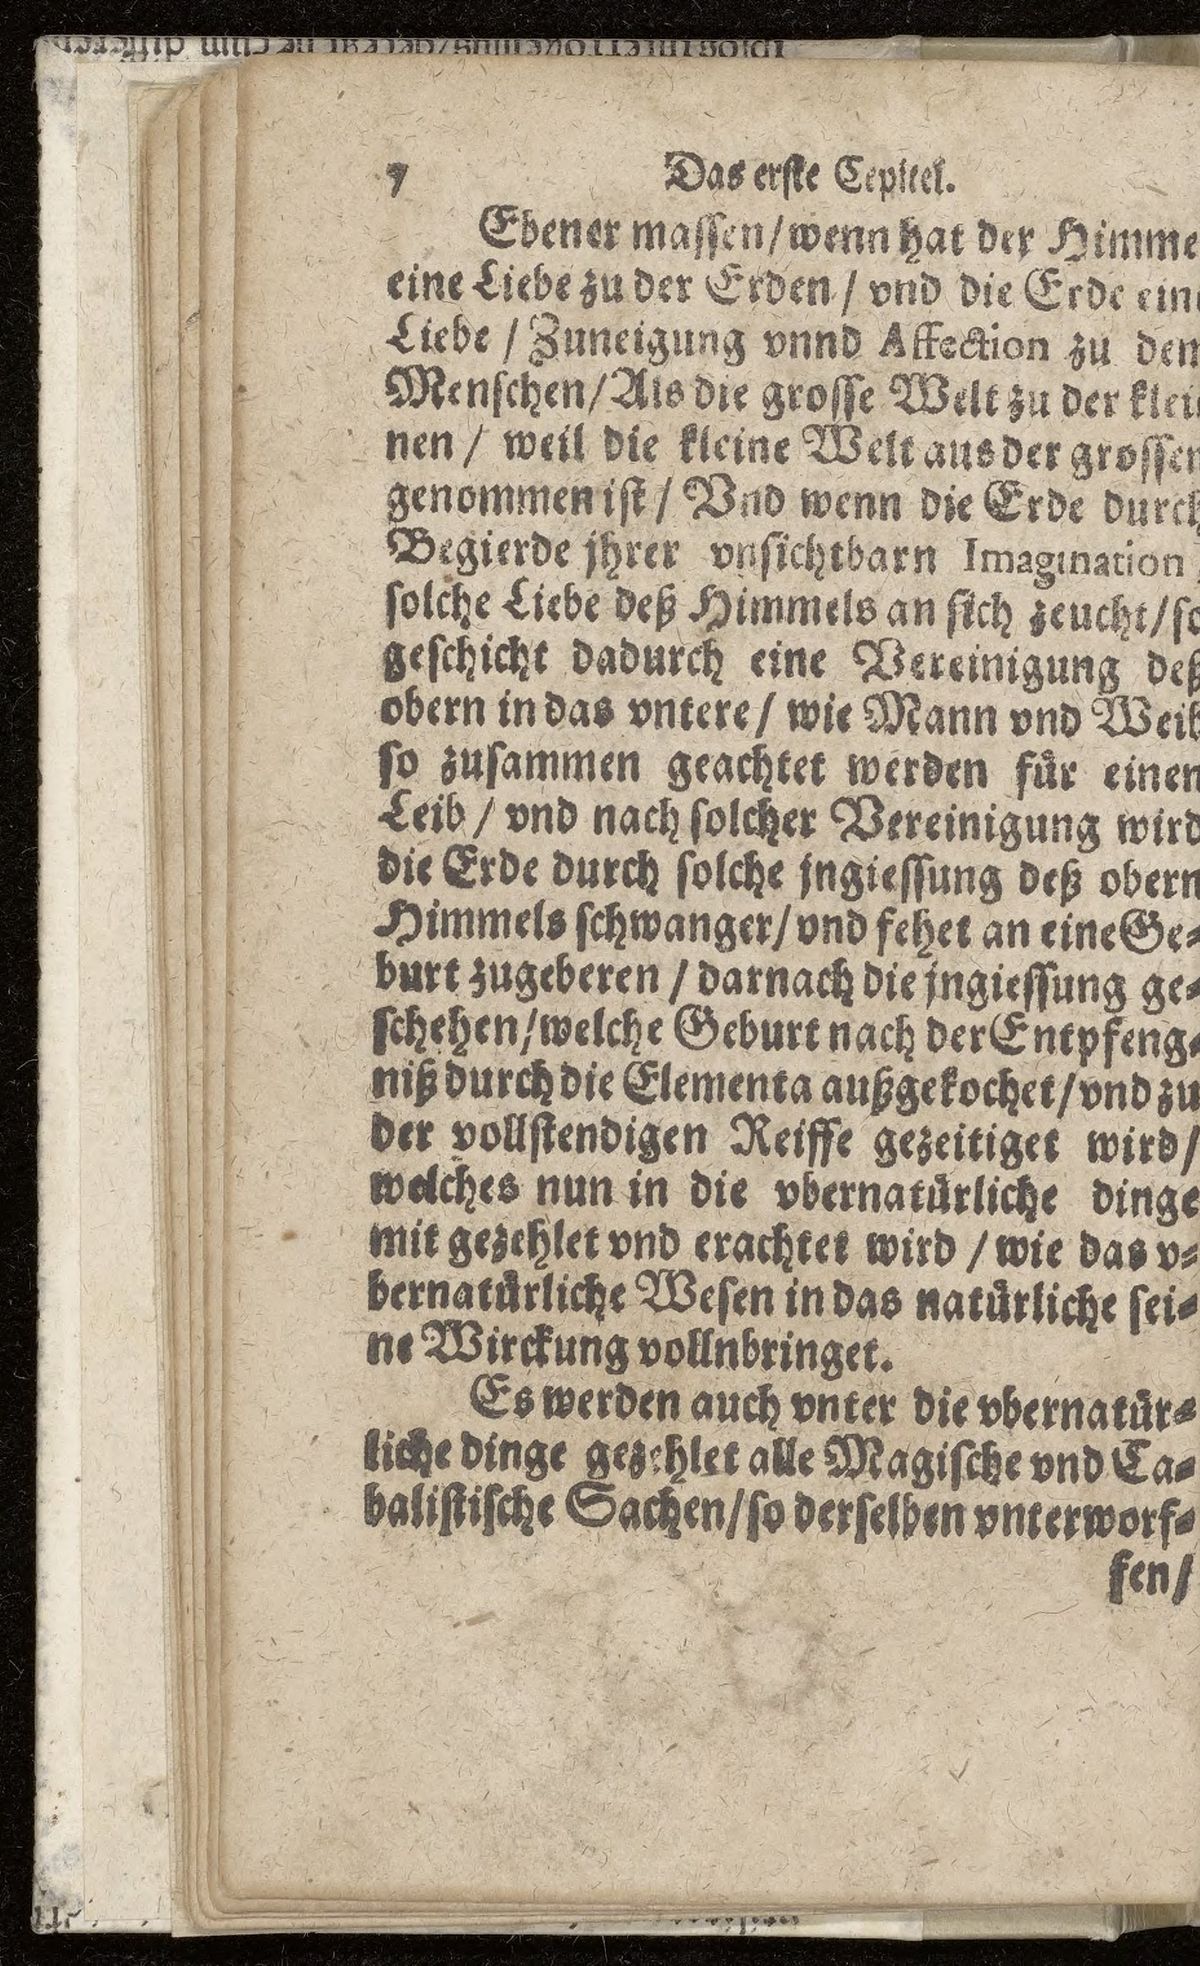 7 Das erste Cepitel.
Ebener massen/ wenn hat der Himme
eine Liebe zu der Erden / vnd die Erde ein
Liebe / Zuneigung vnnd Affection zu dem
Menschen/ Als die grosse Welt zu der klei
nen / weil die kleine Welt aus der grossen
genommen ist / Vnd wenn die Erde durch
Begierde jhrer vnsichtbarn Imagination
solche Liebe deß Himmels an sich zeucht/ so
geschicht dadurch eine Vereinigung deß
obern in das vntere / wie Mann vnd Weib
so zusammen geachtet werden für einen
Leib / vnd nach solcher Vereinigung wird
die Erde durch solche jngiessung deß obern
Himmels schwanger/ vnd fehet an eine Ge-
burt zugeberen / darnach die jngiessung ge-
schehen/ welche Geburt nach der Entpfeng-
niß durch die Elementa außgekochet/ vnd zu
der vollstendigen Reiffe gezeitiget wird/
welches nun in die vbernatürliche dinge
mit gezehlet vnd erachtet wird / wie das v-
bernatürliche Wesen in das natürliche sei-
ne Wirckung vollnbringet.
Es werden auch vnter die vbernatür-
liche dinge gezehlet alle Magische vnd Ca-
balistische Sachen/ so derselben vnterworf-
fen/